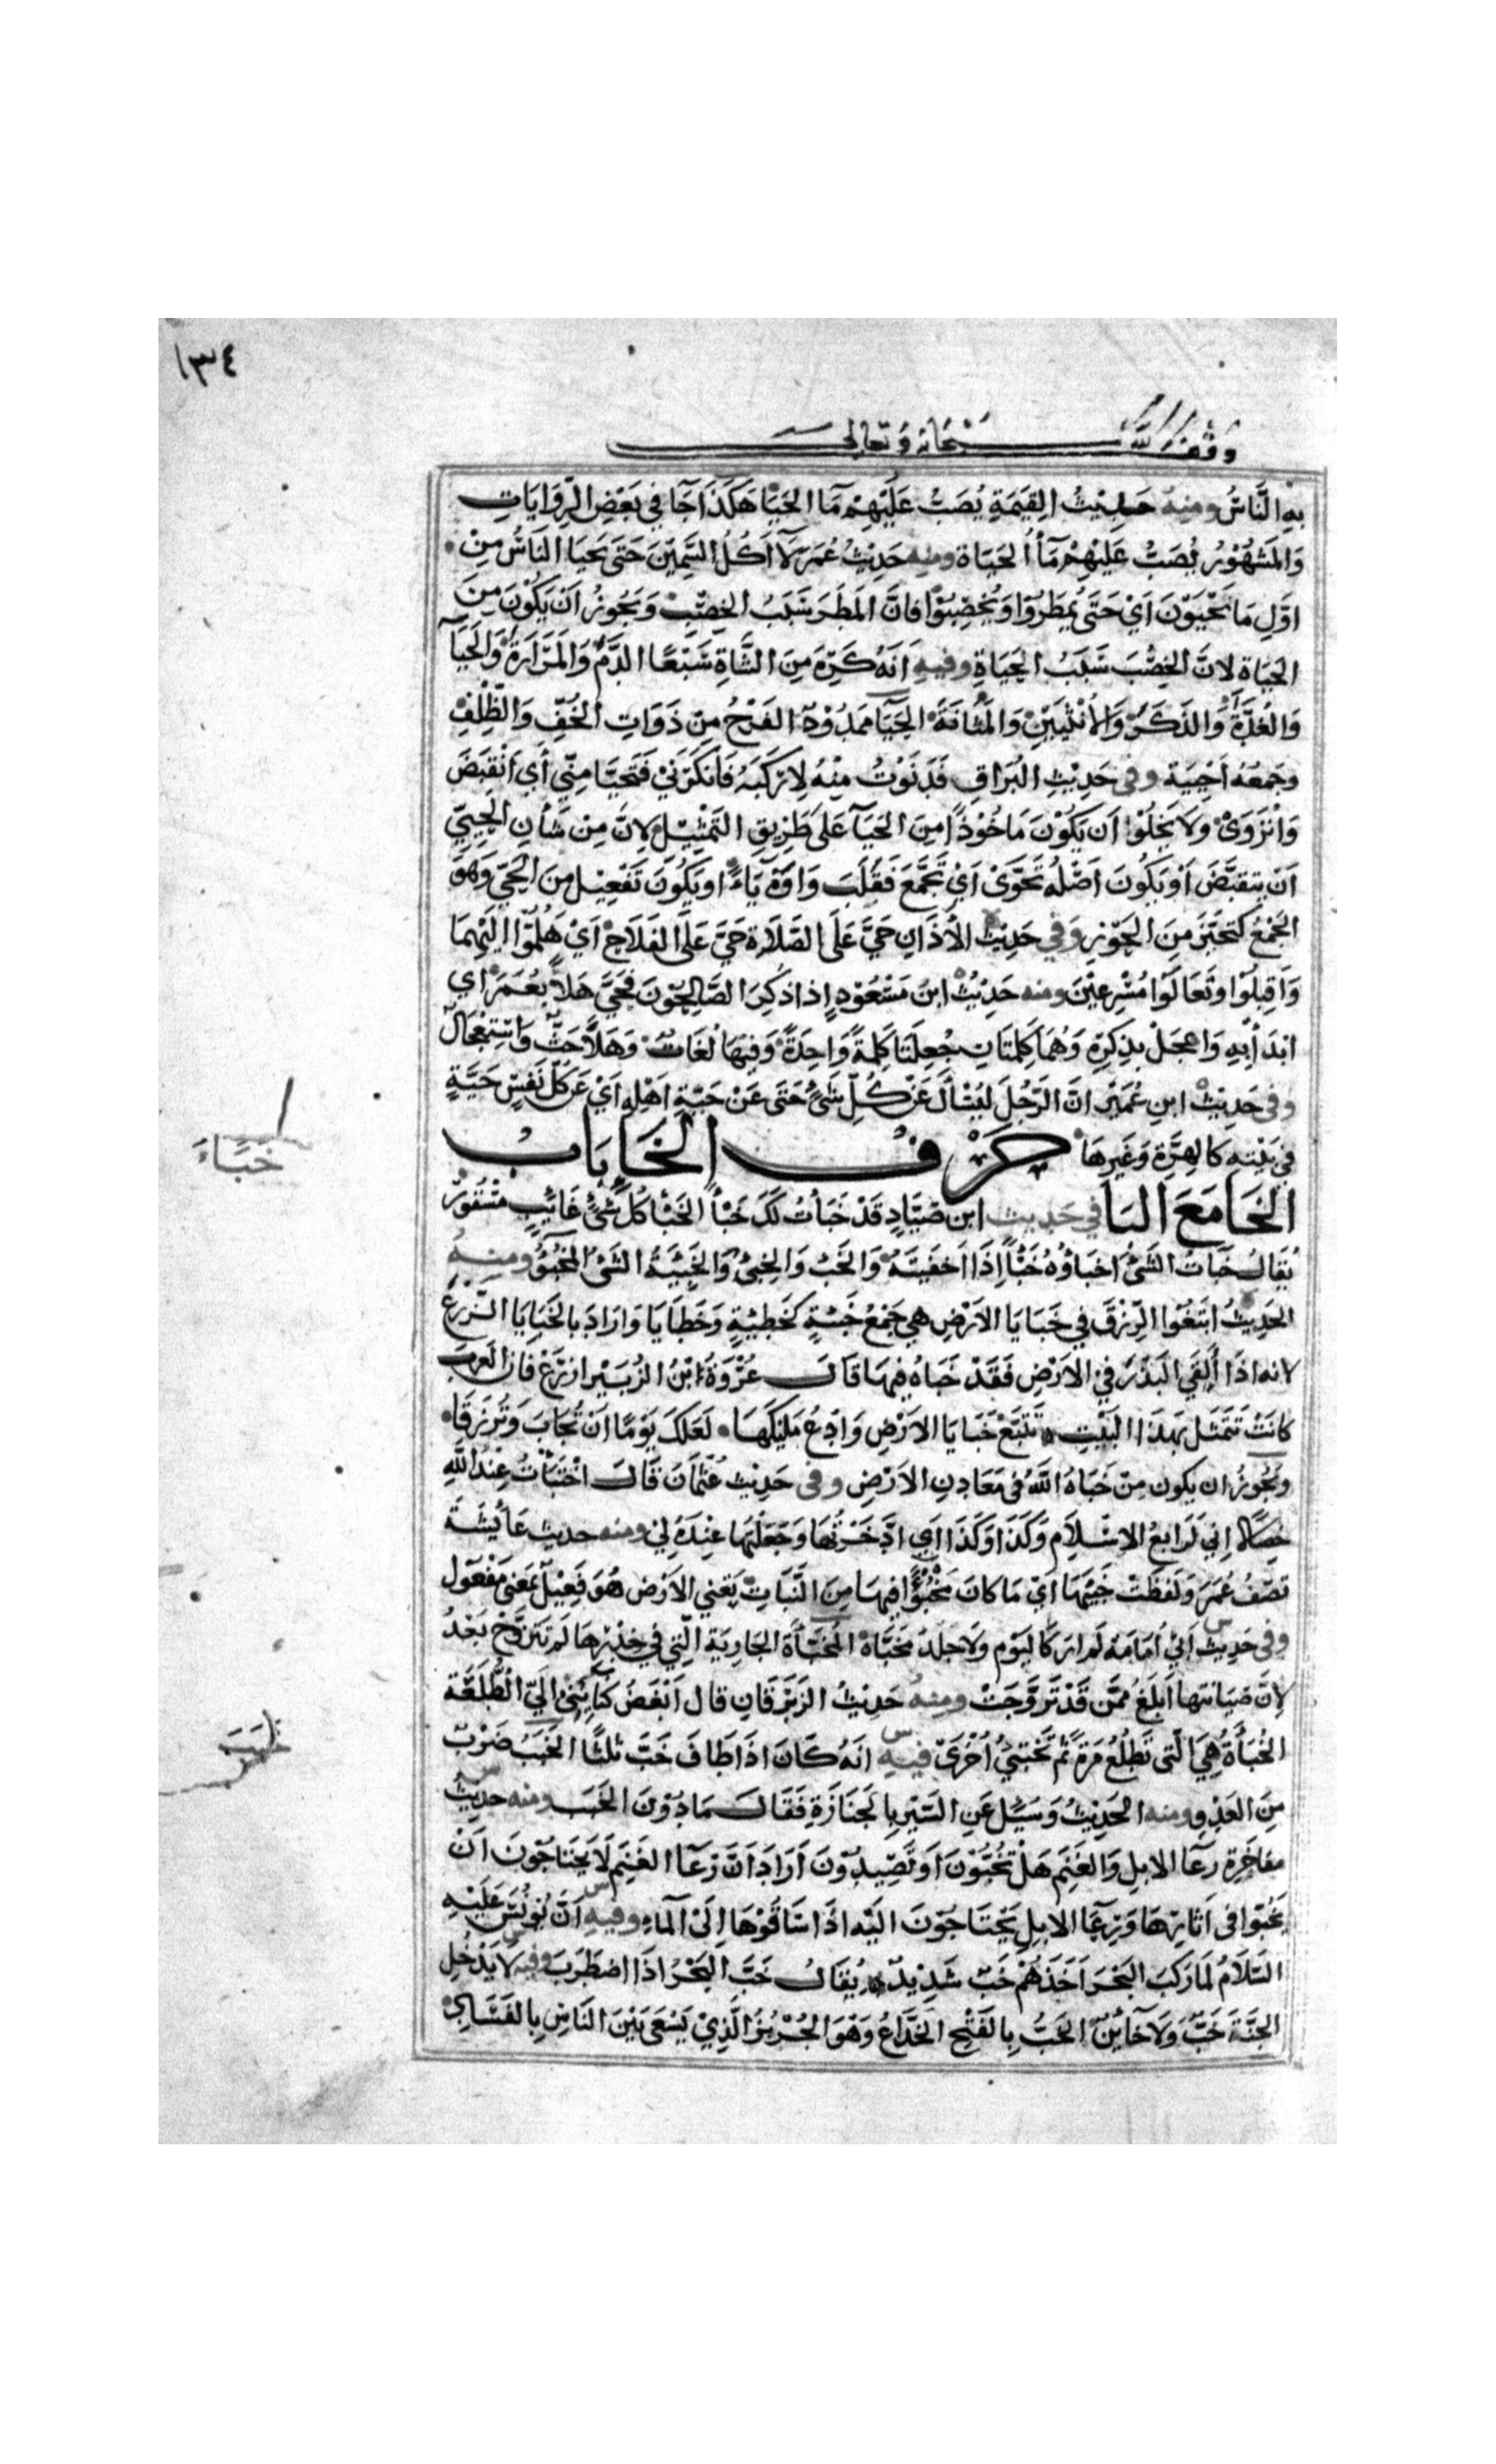 ١٣٤
وقف لله سبحانه وتعالى
بِهِ النَّاسُ ومنه حديث القيمة يُصَبُّ عَلَيْهِمْ مَا الحَيَا هَكَذَا جَا في بَعْضِ الرِّوَايَاتِ
وَالمَشْهُوْرُ يُصَبُّ عَلَيْهِمْ مَاُ الحَيَاة ومنه حَدِيْثُ عُمَرَ لَا آكُلُ السَّمِيْنَ حَتَّى يَحيَا النَّاسُ مِنْ
اوَّلِ مَا يَحْيَوْنَ اَيْ حَتَّى يُمطَرُوْا وَيُخْصِبُوْا فانَّ المَطَرَ سَبَبُ الخِصْبِ وَيَجُوزُ اَنْ يَكُوْنَ مِنَ
الحَيَاة لانَّ الخِصْبَ سَبَبُ الحَيَاةِ وفيهِ اَنَّهُ كَرِهَ مِنَ الشَّاةِ سَبْعًا الدَّمُ وَالمَرَارَةُ وَالحَيَآ
وَالغُدَّةُ وَالذَكَرُ وَالاُنْثَيَيْنِ وَالمَثَانَةُ الحَيَآ مَمدُوْدٌ الفَرْجُ مِنْ ذَوَاتِ الخُفِّ وَالظِّلْفِ
وجَمعُهُ اَحيِيَة وفى حَدِيْثِ البُرَاقِ فَدَنَوْتُ مِنْهُ لِاَرْكَبَهُ فَانْكَرَنِيْ فَتَحَيَّا مِنِّي أَي اَنْقَبَضَ
وَانْزَوَىْ وَلَا يَخْلُوْا اَن يَكُوْنَ مَاخُوْذًا مِنَ الحَيَآ عَلَى طَرِيْقِ التَمْثِيْلِ لِاَنَّ مِنْ شَأنِ الحَيِيِّ
اَنْ يَتَقَبَّضَ اَوْ يَكُونَ اَصْلُهُ تَحَوَّىْ اَيْ تَجَمَّعَ فَقُلِبَ وَاوُهُ يَاءً او يَكُوْنَ تَفْعِيْل مِنَ الحَيّ وَهوَ
الجَمْعُ كَتَحَيَّزَ مِنَ الحَوْزِ وَفي حَدِيْثِ الأَذَانِ حَيَّ عَلَى الصَّلَاة حَيَّ عَلَى الفَلَاحِ اَيْ هَلُمُّوْا اِلَيْهِمَا
وَاقِبِلُوْا وتَعَالَوْا مُسْرِعِيْنَ ومنه حَدِيْثُ ابنِ مَسْعُوْدٍ اِذا ذُكِرَ الصَّالِحُوْنَ فَحَيَّ هَلاً بِعُمَرَ اي
ابدَأ بِهِ وَاعجَلْ بذِكرِهِ وَهُمَا كَلِمَتَانِ جُعِلَتَا كَلِمَةً وَاحِدَةً وَفيهَا لُغَاتٌ وَهَلاً حَثٌّ وَاسْتِعْجَالٌ
وفى حَدِيْثِ ابنِ عُمَيْرٍ انَّ الرَّجُلَ لَيُسْأَلُ عَنْ كُلِّ شَيْءٍ حَتَّى عَنْ حَيَّةِ اَهْلِهِ اَيْ عَن كُلّ نَفْسٍ حَيَّةٍ
في بَيْتِهِ كَالهِرَّةِ وَغَيرِهَا حَرْفُ الخَا بَابُ
الخَا مَعَ البَا في حَدِيث ابن صَيَّادٍ قَدْ خَبَأتُ لَكَ خَبْأً الخَبْأ كُلّ شَيْءٍ غَائِبٍ مَسْتُورٌ
يُقَالُ خَبَأتُ الشَّيْءَ اخبَاؤُهُ خَبْأً اِذَا اَخفَيتَهُ وَالخَبْ وَالخِبىُ وَالخَبِيْئَةُ الشَّئُ المَخْبُوُ ومِنهُ
الحَدِيْثُ ابْتَغُوْا الرِّزْقَ في خَبَايَا الاَرْضِ هِي جَمْعُ خَبِيْئَةٍ كَخَطِيْئَةٍ وَخَطَايَا وَارَادَ بالخَبَايَا الزَّرْعَ
لانه اذَا أَلْقَي البَذْرَ في الاَرْضِ فَقَدْ خَبَاهُ فِيهَا قَالَ عُرْوَةُ ابْنُ الزُبَيْرِ ازرَعْ فان العَرَب
كَانَتْ تَتَمَثَّل بهَذَا البَيْتِ تَتَبَّعْ خَبَايَا الاَرْضِ وَادْعُ مَلِيْكَهَا لَعَلَّكَ يَوْمًا اَنْ تُجَابَ وَتُرْزَقَا
ويَجُوزُ ان يكون مِنْ خَبَاهُ اللّهُ فى مَعَادِنِ الاَرْضِ وفى حَدِيْثِ عُثمَانَ قَالَ اخْتَبَأتُ عِنْدَ اللّهِ
خِصَالاً اِنِي لَرَابِعُ الاِسْلَامِ وَكَذَا وَكَذَا اَي ادَّخَرْتُهَا وَجَعَلْتُهَا عِنْدَهُ لِي ومنه حديث عَائِشَة
تَصِفُ عُمَرَ وَلَفَظَتْ خَبِيئَهَا اَيْ مَا كَانَ مَخْبُوْاً فيهَا مِنَ النَّبَاتِ يَعْنِي الاَرْضَ هُوَ فَعِيْلٌ بمَعْنى مَفْعُول
وفى حَدِيْثِ اَبِي اُمَامَة لَم ارَ كَاليَوْمِ وَلَا جِلدَ مُخَبَّاة المُخَبَّأَة الجَارِيَة الَّتِي في خِدْرِهَا لم تَتَزَوَّج بَعْدُ
لِاَنَّ صِيَانَتَهَا اَبلَغُ مِمَّن قَدْ تَزَوَّجَتْ ومِنهُ حَدِيْثُ الزِبْرِقَانِ قال اَبْغَضُ كَنَائِنِي اِلَيّ الطُّلَعَةُ
الخُبَأَةُ هِيَ الَّتِي تَطَّلِعُ مَرَّةً ثُمَّ تَخْتَبِئُ اُخْرَى فيهِ اَنَّهُ كَانَ اذَا طَافَ خَبَّ ثَلثًا الخَبَبُ ضَرْبٌ
مِنَ العَدْوِ ومنه الحَدِيْثُ وَسُئِلَ عَنِ السَّيْرِ بِالجَنَازَةِ فَقَالَ مَا دُوْنَ الخَبَبِ ومنه حديث
مفاخَرَة رِعَا الابِل وَالغَنَمِ هَلْ تَخُبُّوْنَ اَوْ تَصِيْدُوْنَ اَرَادَ انَّ رِعَآ الغَنَمِ لَا يَحْتَاجُوْنَ اَنْ
يَخُبُّوْا فى اَثَارِهَا وَرِعَآ الابِلِ يَحْتَاجُوْنَ الَيْهِ اذَا سَاقُوْهَا اِلَىْ المَآءِ وفيهِ اَنَّ يُوْنُسَ عَلَيْهِ
السَّلَامُ لمَا رَكِبَ البَحْرَ اَخَذَهُمْ خَبٌّ شَدِيْدٌ يُقَالُ خَبَّ البَحْرُ اذَا اضطَرَبَ وفيه لَا يَدْخُلُ
الجَنَّةَ خَبٌّ وَلَا خَائِنٌ الخَبُّ بِالفَتْحِ الخَدَّاعُ وَهْوَ الجُرْبُزُ الَّذِيْ يَسْعَى بَيْنَ النَّاسِ بِالفَسَادِ
خَبَاءَ
خَبَبَ